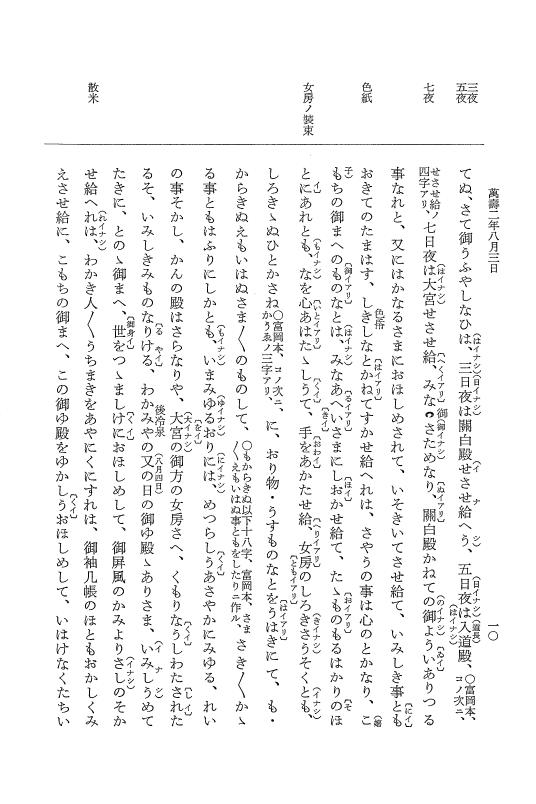 萬壽二年八月三日
一〇
三夜
五夜
七夜
色紙
女房ノ裝束
散米
てぬ、さて御うふやしなひは、三日夜は關白殿せさせ給へう、五日夜は入道殿、○富岡本、コノ次ニ、
せさせ給ノ四字アリ、七日夜は大宮せさせ給、みな御さためなり、關白殿かねての御よういありつる
事なれと、又にはかなるさまにおほしめされて、いそきいてさせ給て、いみしき事とも
おきてのたまはす、しきしなとかねてすかせ給へれは、さやうの事は心のとかなり、こ
もちの御まへのものなとは、みなあへいさまにしおかせ給て、たゝものもるはかりのほ
とにあれとも、なを心あはたゝしうて、手をあかたせ給、女房のしろきさうそくとも、
しろきゝぬひとかさね○富岡本、コノ次ニ、かうゑノ三字アリ、に、おり物・うすものなとをうはきにて、も・
からきぬえもいはぬさま〳〵のものして、○もからきぬ以下十八字、富岡本、さま〳〵えもいはぬ事ともをしたりニ作ル、さき〳〵かゝ
る事ともはふりにしかとも、いまみゆるおりには、めつらしうあさやかにみゆる、れい
の事そかし、かんの殿はさらなりや、大宮の御方の女房さへ、くもりなうしわたされた
るそ、いみしきみものなりける、わかみやの又の日の御ゆ殿ゝありさま、いみしうめて
たきに、とのゝ御まへ、世をつゝましけにおほしめして、御屏風のかみよりさしのそか
せ給へれは、わかき人〳〵うちまきをあやにくにすれは、御袖几帳のほともおかしくみ
えさせ給に、こもちの御まへ、この御ゆ殿をゆかしうおほしめして、いはけなくたちい